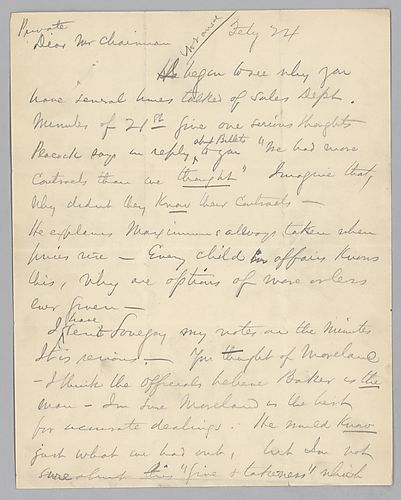 Private
Dear Mr Chairman
Feby 24
began to see why you
have several times talked of Sales Dept.
Minutes of 21st give one serious thoughts
about Billets
Peacock says in reply to you "We had more
Contracts than we thought" Imagine that,
Why didnt they Know their Contracts —
He explains Maximums always taken when
prices rise — Every child in affairs Knows
this, Why are options of more or less
ever given —
have
I sent my notes on the Minutes
It is serious. — You thought of Moreland
– I think the Officials believe Baker is the
man – Im sure Moreland is the best
for accurate dealings. He would Know
just what we had out, but I'm not
sure about this "Give & takeness" which